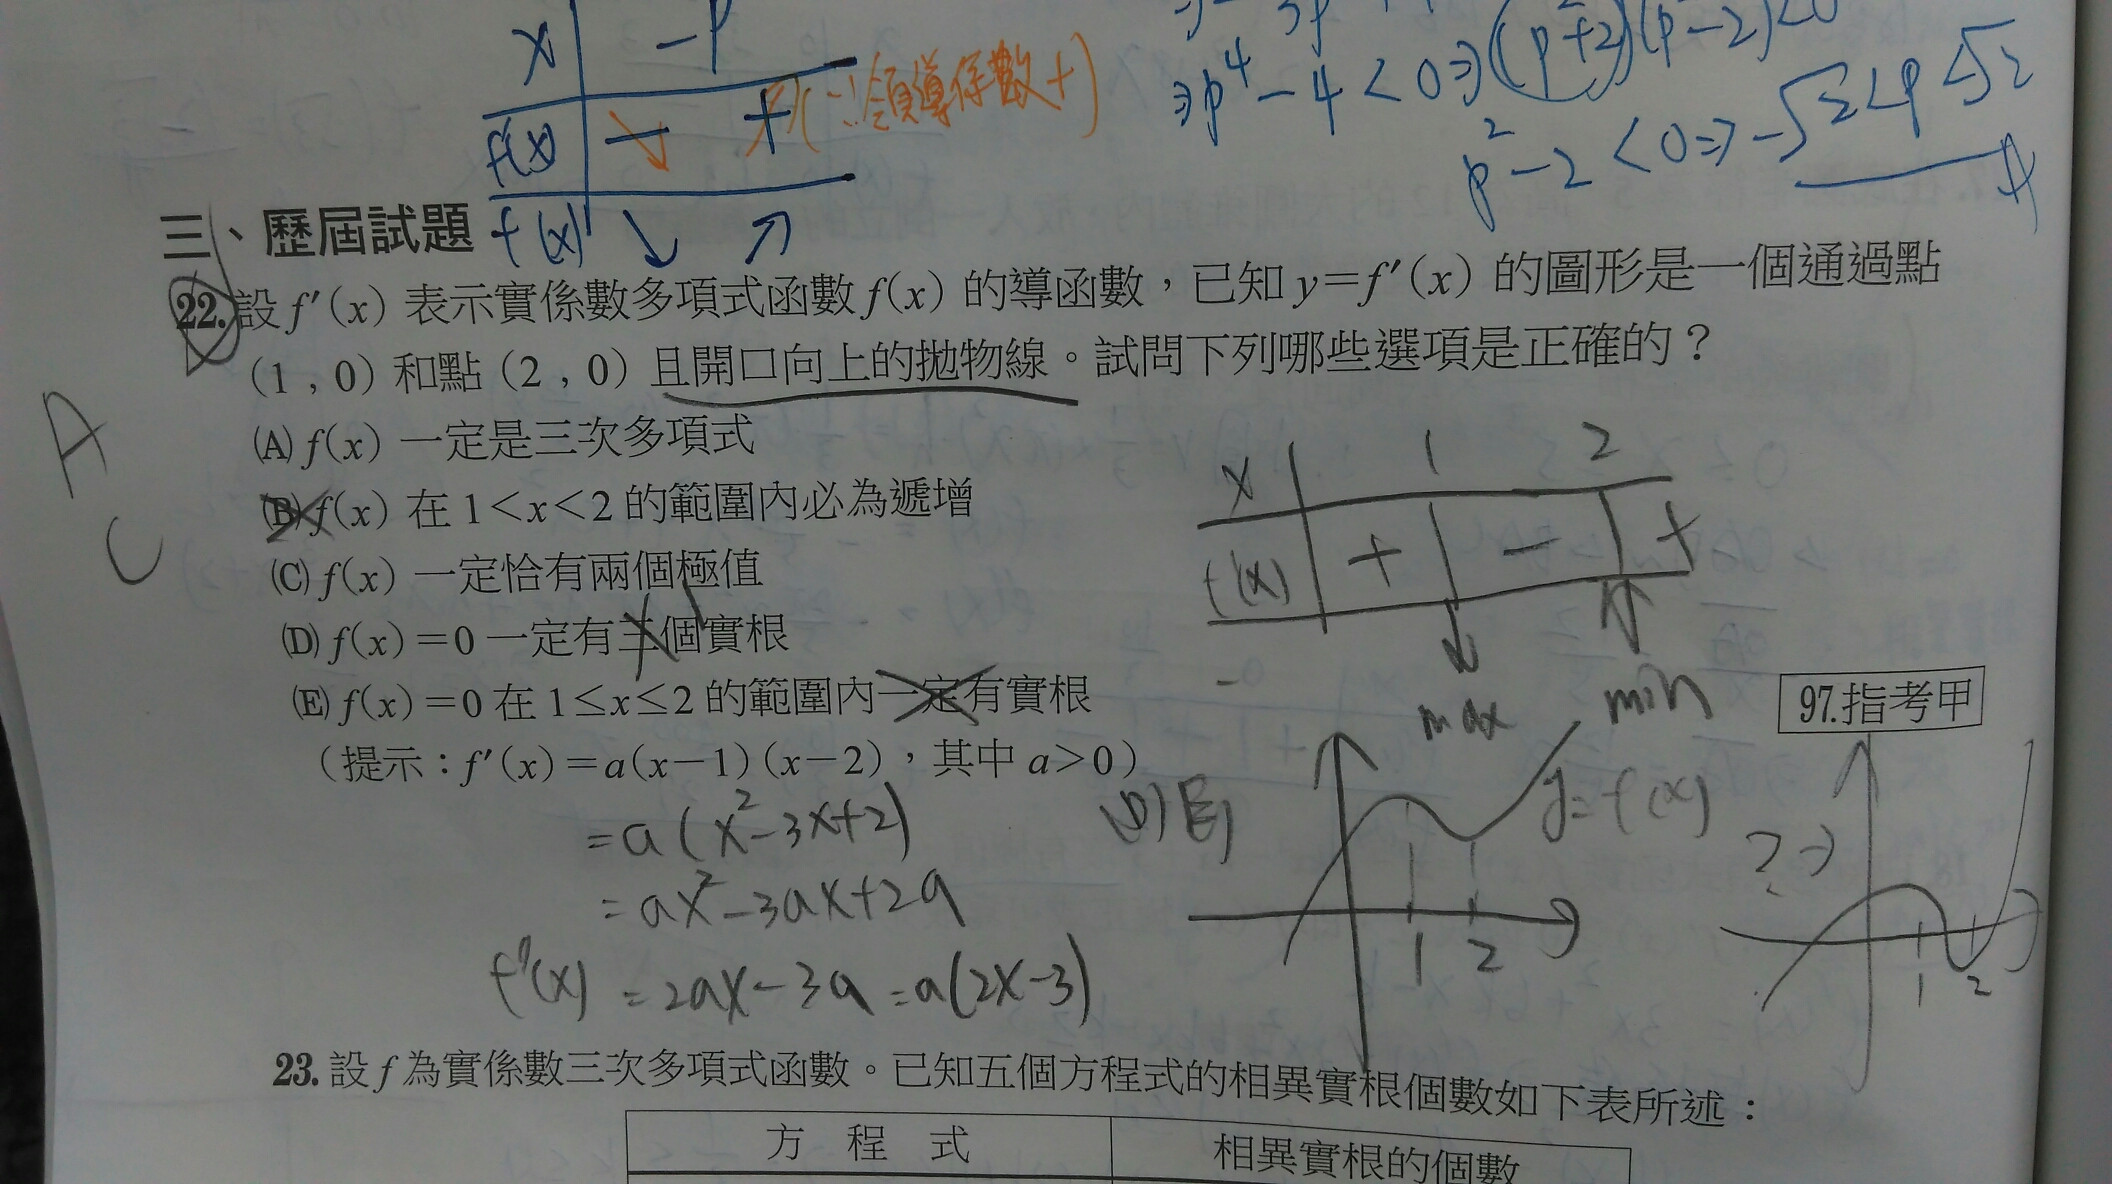 x -p
f'(x) - + (∵領導係數+)
f(x) ↘ ↗
⇒p⁴-4<0⇒(p²+2)(p²-2)<0
p²-2<0⇒-√2<p<√2
三、歷屆試題
22. 設 f′(x) 表示實係數多項式函數 f(x) 的導函數，已知 y=f′(x) 的圖形是一個通過點
(1 , 0) 和點 (2 , 0) 且開口向上的拋物線。試問下列哪些選項是正確的？
A
C
(A) f(x) 一定是三次多項式
(B) f(x) 在 1<x<2 的範圍內必為遞增
(C) f(x) 一定恰有兩個極值
(D) f(x)=0 一定有三個實根
(E) f(x)=0 在 1≤x≤2 的範圍內一定有實根
(提示：f′(x)=a(x-1)(x-2)，其中 a>0)
97.指考甲
x 1 2
f'(x) + - +
max min
=a(x²-3x+2)
=ax²-3ax+2a
f"(x)=2ax-3a=a(2x-3)
(D)(E)
y=f(x)
1 2
?→
1 2
23. 設 f 為實係數三次多項式函數。已知五個方程式的相異實根個數如下表所述：
方 程 式 相異實根的個數